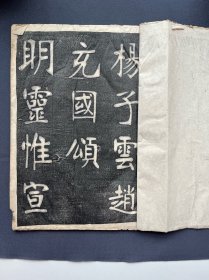 楊子雲趙
充國頌
明靈惟宣